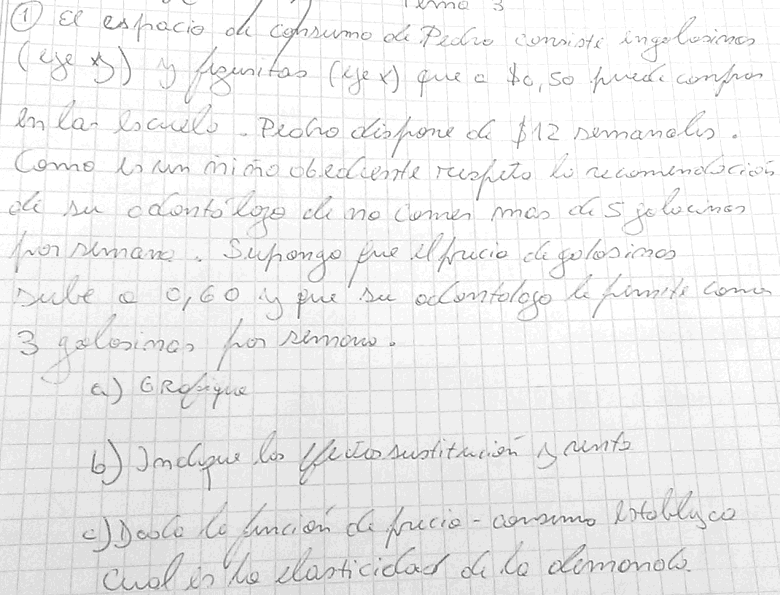 Tema 3
① El espacio de consumo de Pedro consiste en golosinas
(eje y) y figuritas (eje x) que a $0,50 puede comprar
en la escuela. Pedro dispone de $12 semanales.
Como es un niño obediente respeta la recomendación
de su odontólogo de no comer mas de 5 golosinas
por semana. Supongo que el precio de golosinas
sube a 0,60 y que su odontologo le permite comer
3 golosinas por semana.
a) GRafique
b) Indique los efectos sustitución y renta
c) Dada la función de precio-consumo establezca
cual es la elasticidad de la demanda.